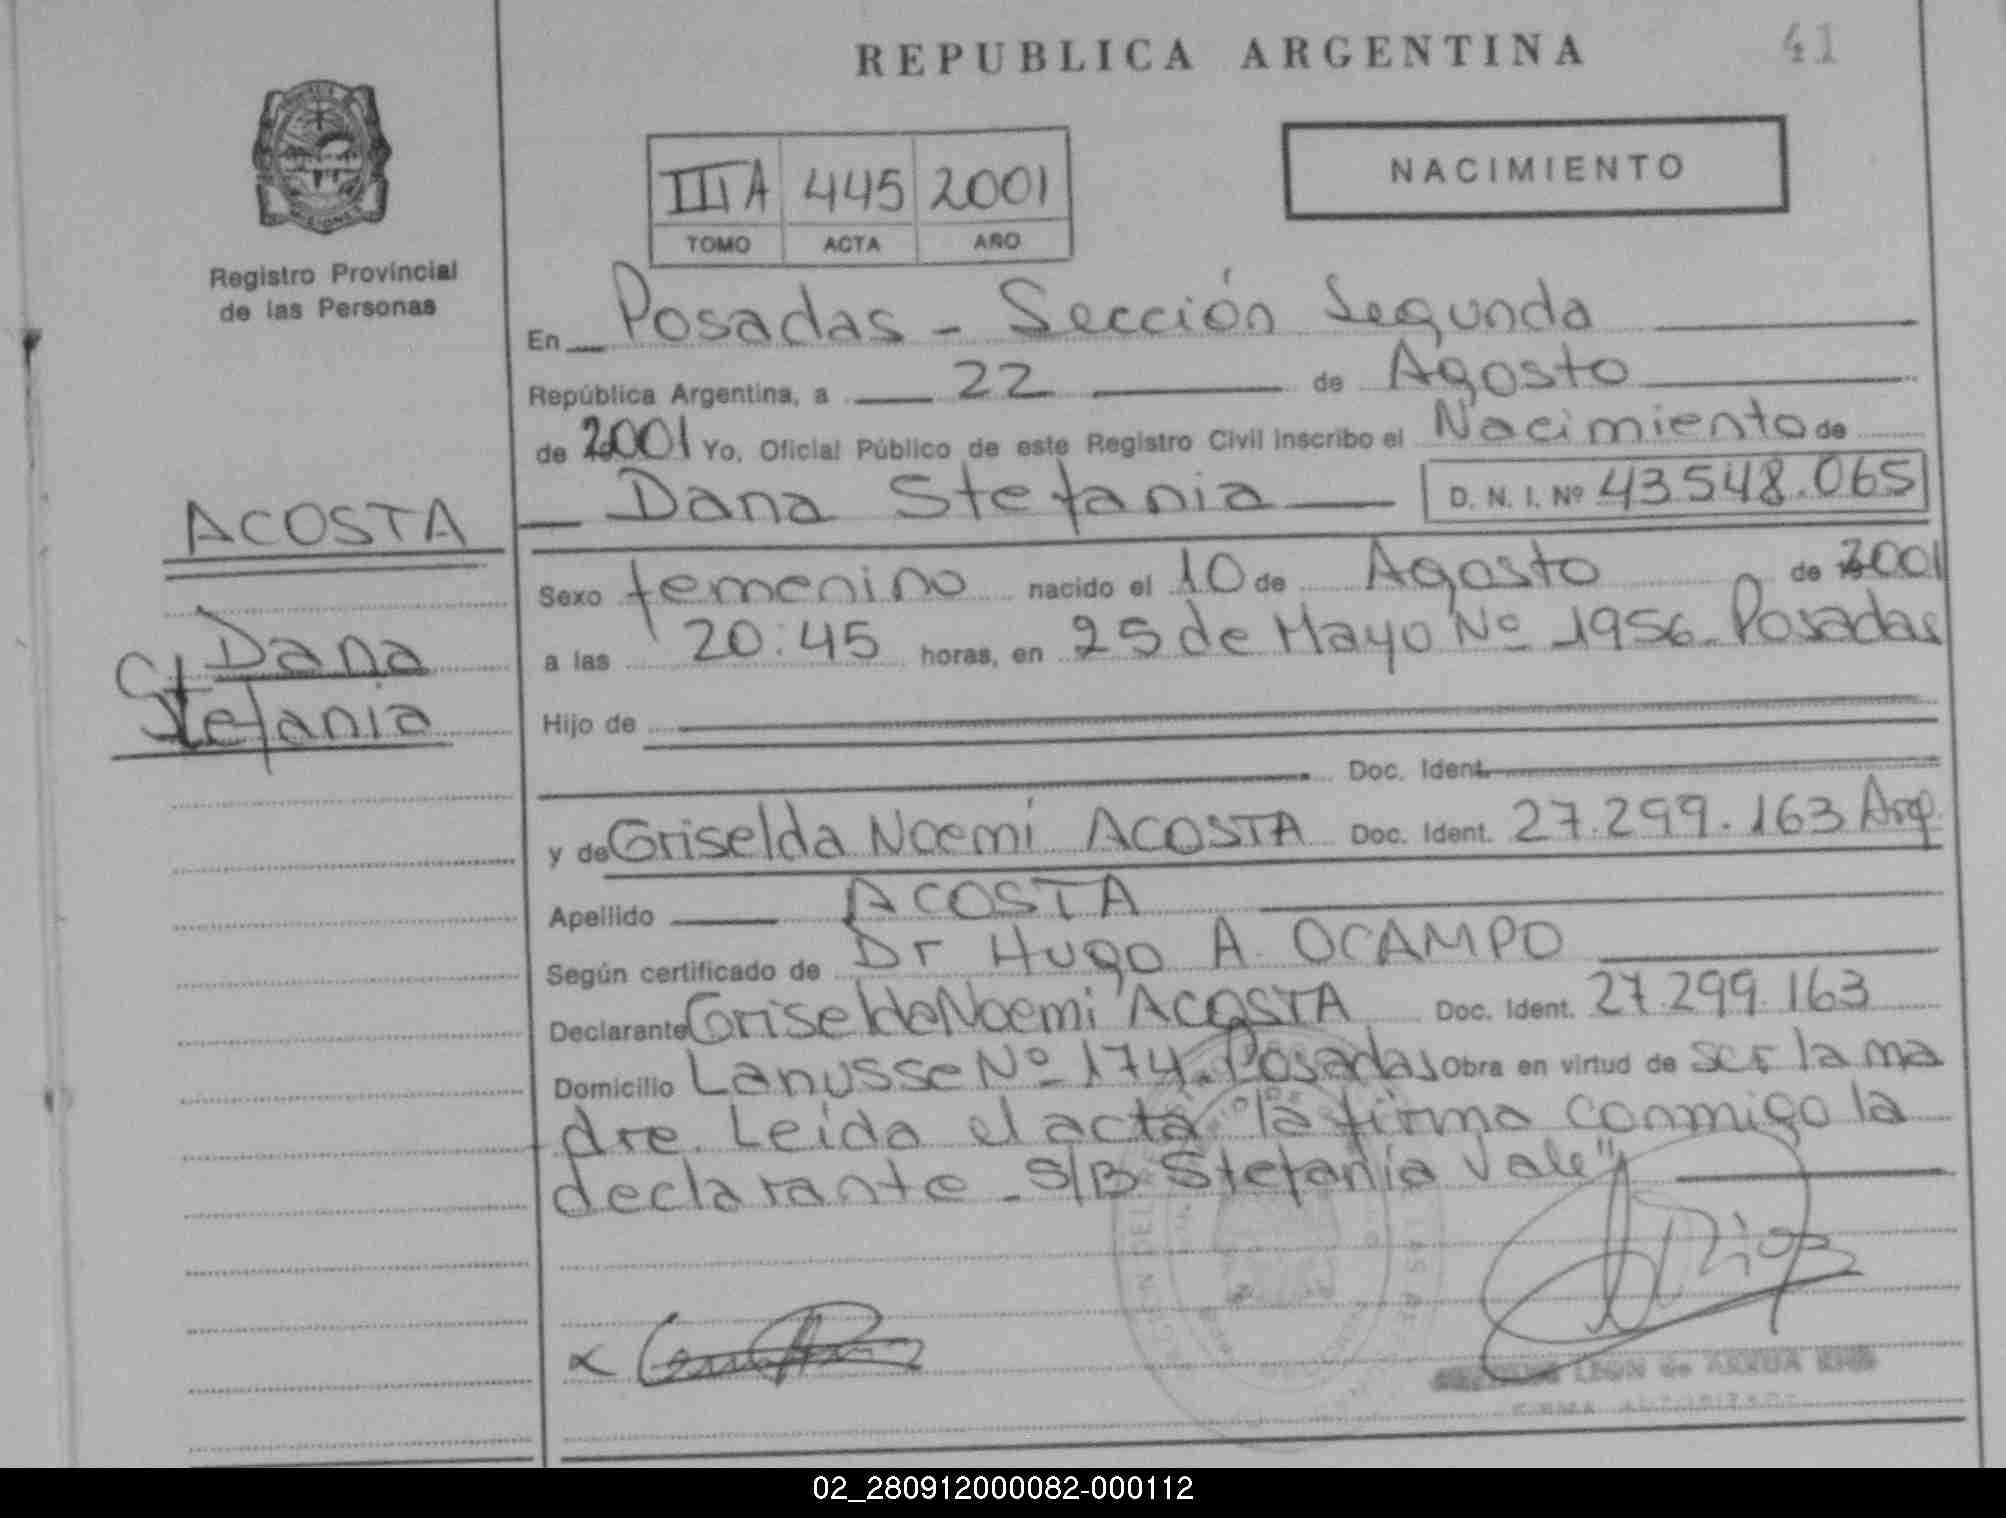 REPUBLICA ARGENTINA
41
III A 445 2001
TOMO ACTA AÑO
NACIMIENTO
Registro Provincial
de las Personas
En Posadas - Sección Segunda
República Argentina, a 22 de Agosto
de 2001 Yo, Oficial Público de este Registro Civil inscribo el Nacimiento de
Dana Stefania D. N. I. Nº 43548.065
ACOSTA
Dana
Stefania
Sexo femenino nacido el 10 de Agosto de 2001
a las 20:45 horas, en 25 de Mayo Nº 1956. Posadas
Hijo de
Doc. Ident.
y de Griselda Noemi ACOSTA Doc. Ident. 27.299.163 Arg.
Apellido ACOSTA
Según certificado de Dr Hugo A. OCAMPO
Declarante Griselda Noemi ACOSTA Doc. Ident. 27.299.163
Domicilio Lanusse Nº 174. Posadas Obra en virtud de ser la ma
dre. Leida el acta la firma conmigo la
declarante - S/B Stefania Vale"
LEON de ARRUA
FIRMA AUTORIZADA
02_280912000082-000112